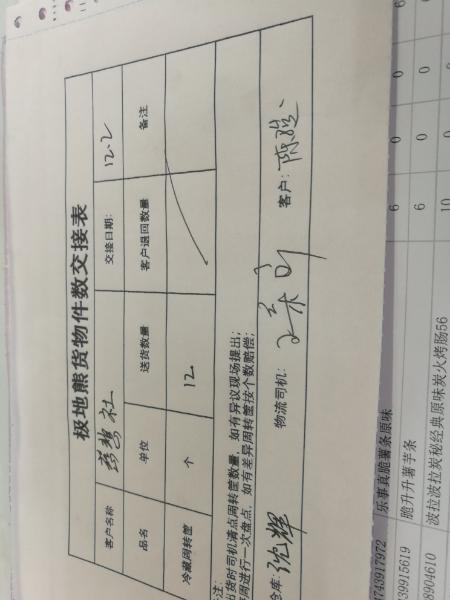 极地熊货物件数交接表
客户名称 交接日期: 12.2
品名 单位 送货数量 客户退回数量 备注
冷藏周转筐 个 12
出货时司机清点周转筐数量, 如有异议现场提出;
周进行一次盘点, 如有差异周转筐按个数赔偿;
仓库: 沈辉 物流司机: 客户:
乐事真脆薯条原味 6 0 0
39915619 脆升升薯芋条 6 0 0
8904610 波拉波拉炭秘经典原味炭火烤肠56 10